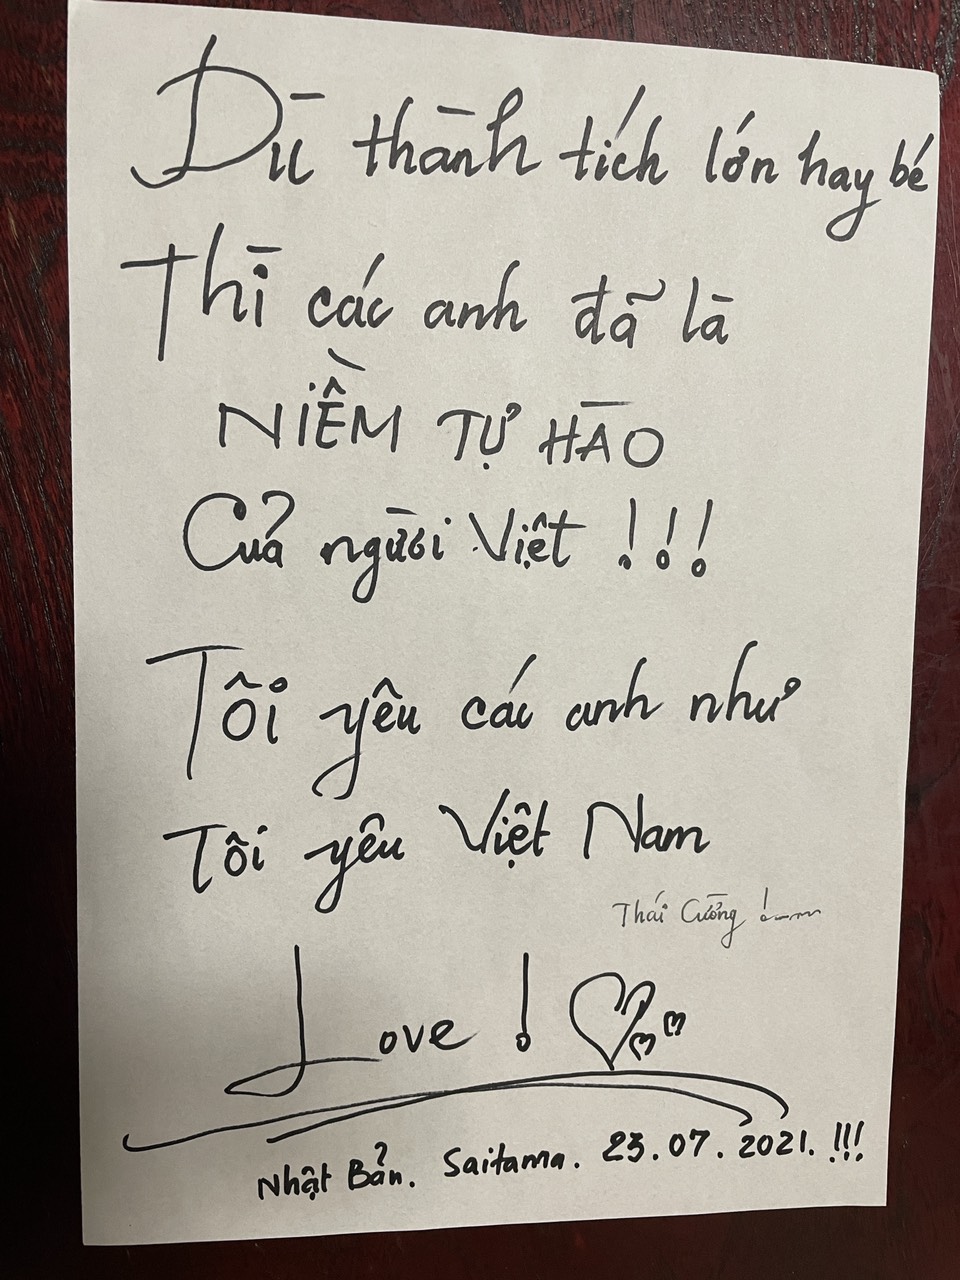 Dù thành tích lớn hay bé
Thì các anh đã là
NIỀM TỰ HÀO
Của người Việt !!!
Tôi yêu các anh như
Tôi yêu Việt Nam
Thái Cường !
Love !
Nhật Bản. Saitama. 23.07.2021. !!!